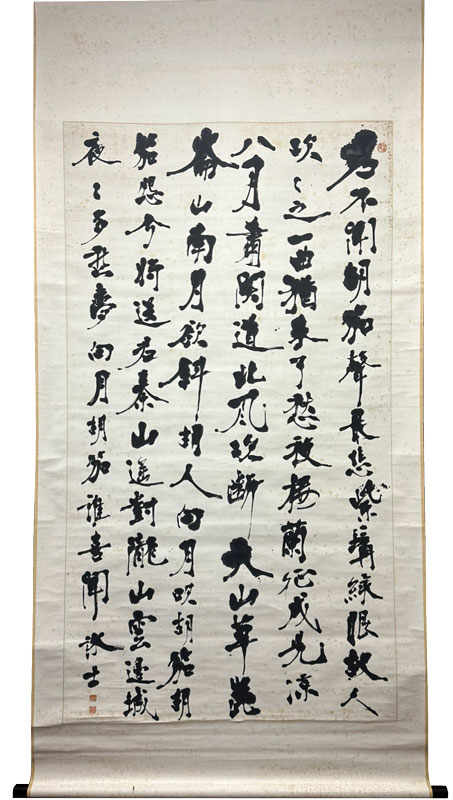 君不聞胡笳聲最悲紫髯綠眼胡人
吹々之一曲猶未了愁殺樓蘭征戍兒涼
八月蕭關道北風吹斷天山草崑
崙山南月欲斜胡人向月吹胡笳胡
笳怨兮將送君秦山遙對隴山雲邊城
夜々多愁夢向月胡笳誰喜聞